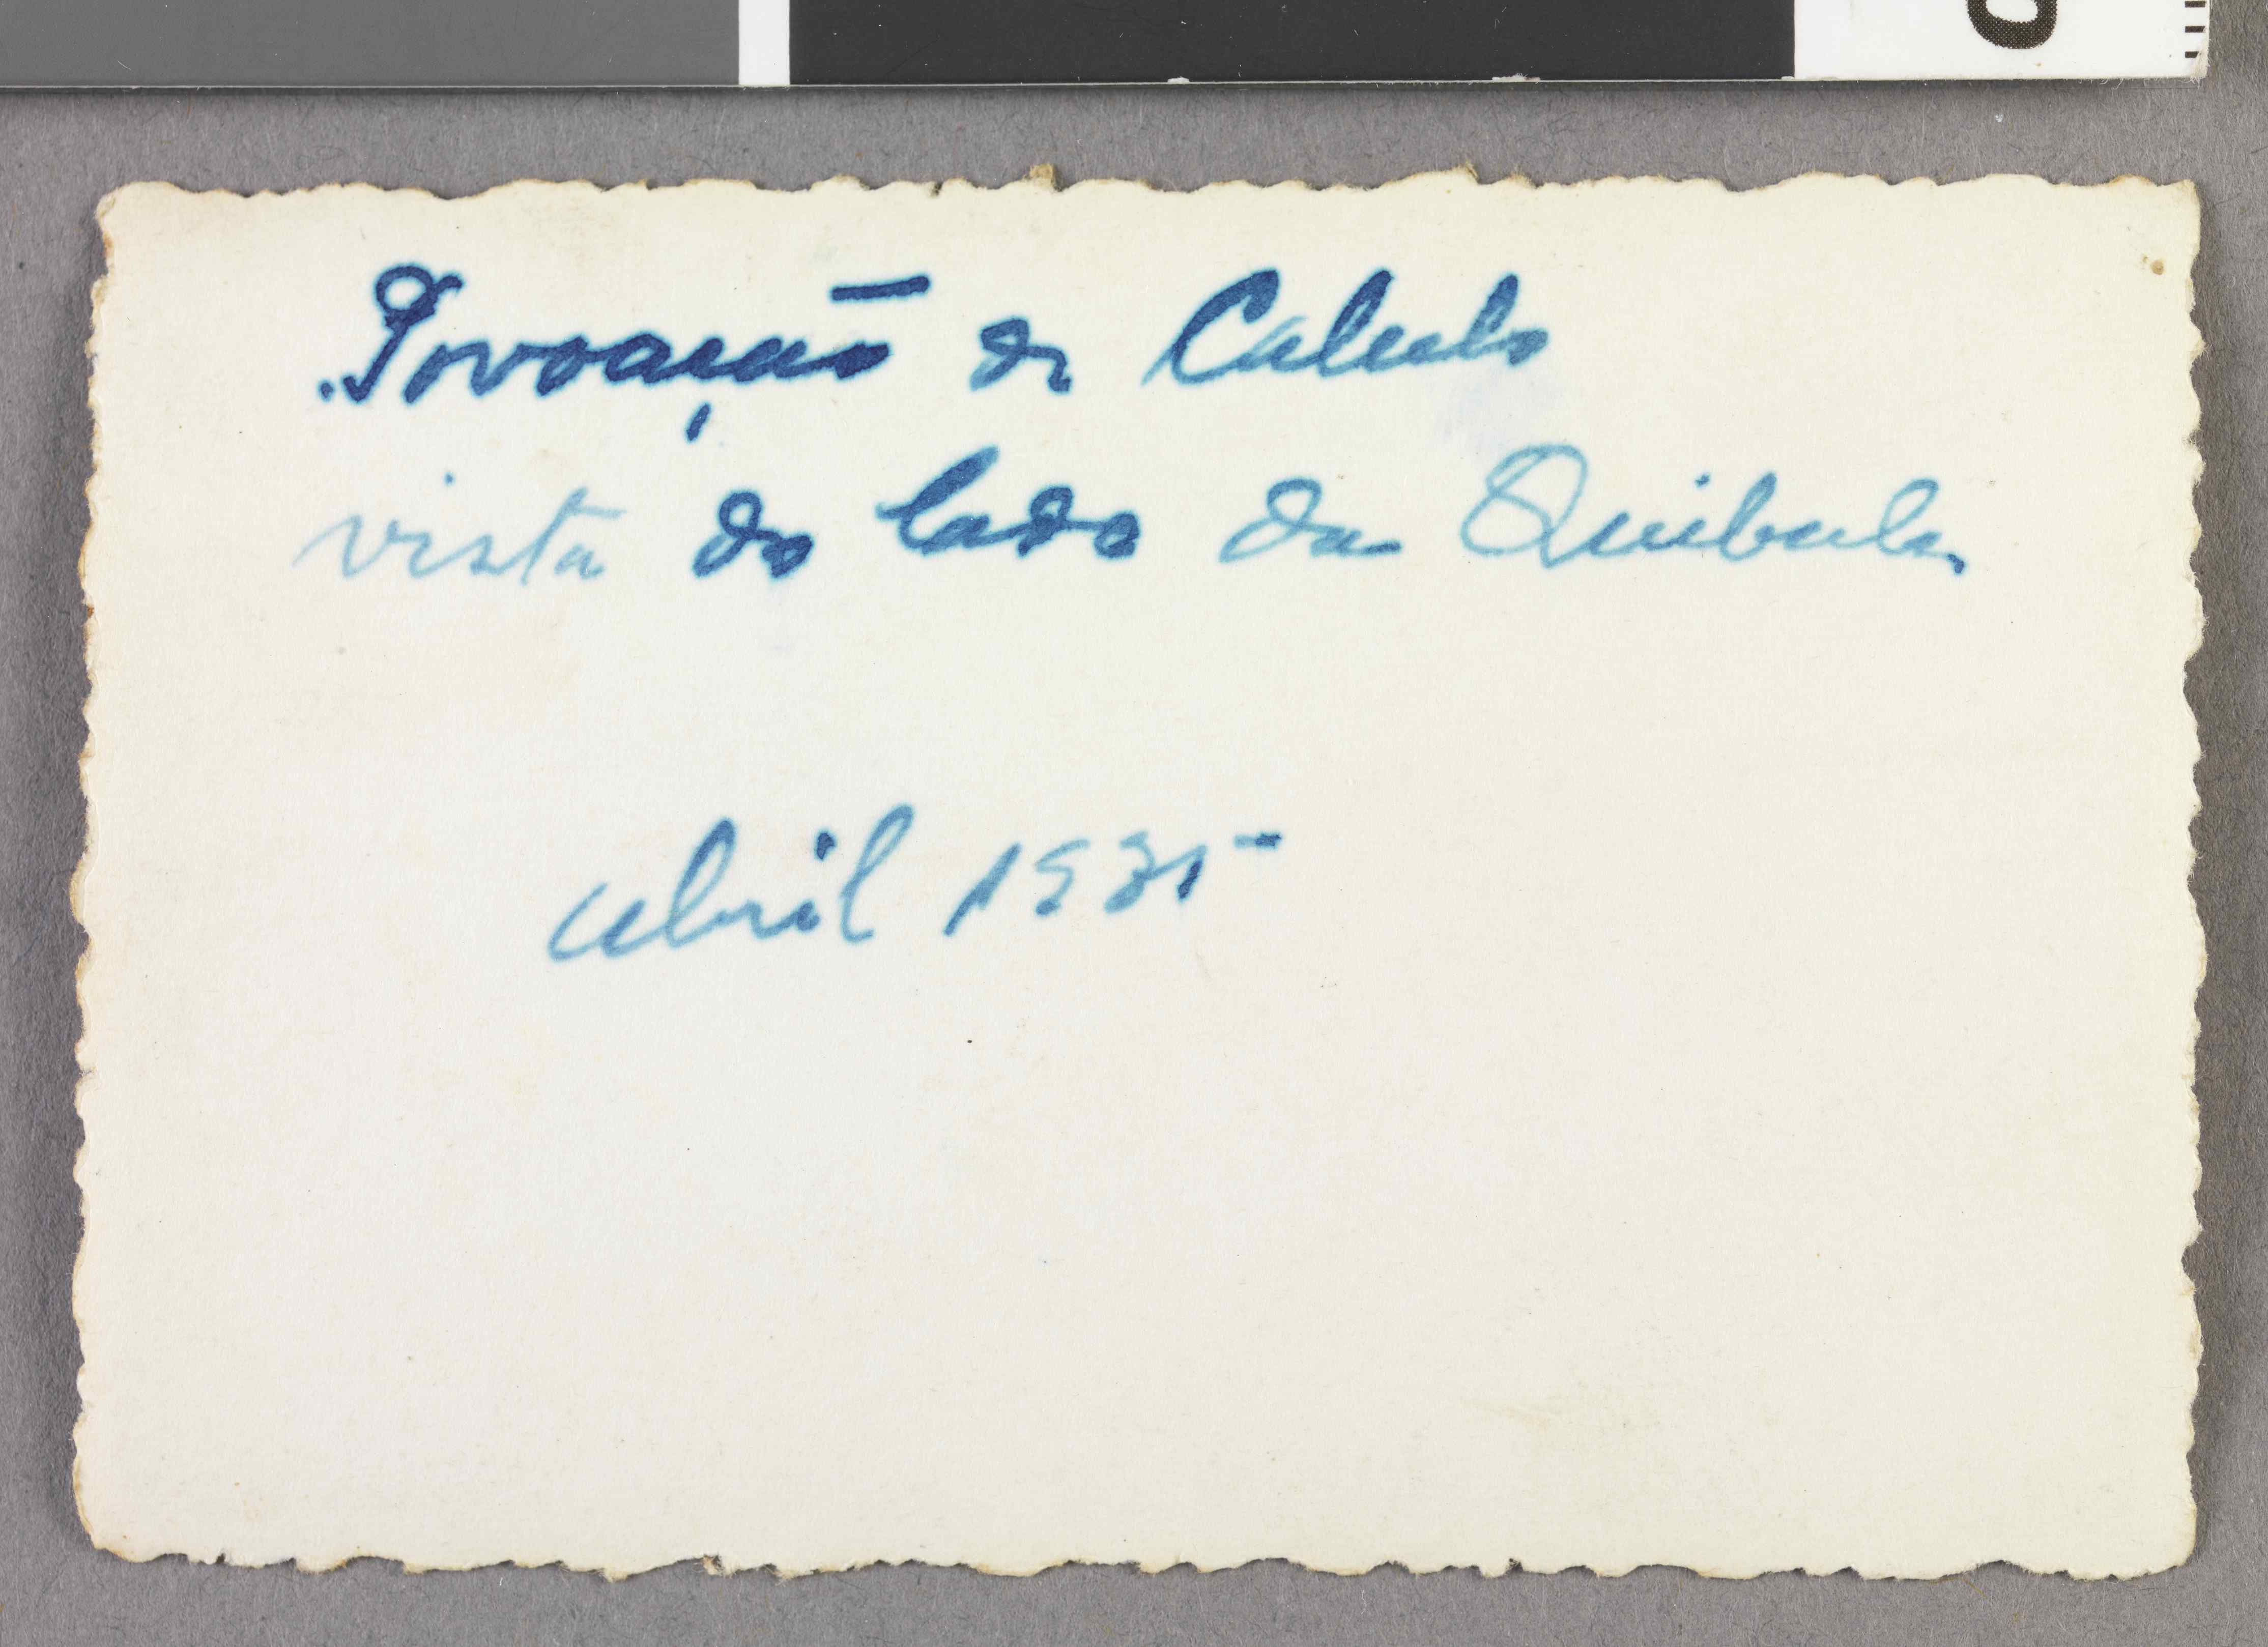 Povoação de Calulo
vista do lado da Quibula
Abril 1935